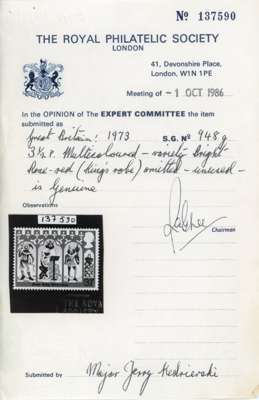 Nº 137590
THE ROYAL PHILATELIC SOCIETY
LONDON
41, Devonshire Place,
London, W1N 1PE
Meeting of - 1 OCT 1986
In the OPINION of The EXPERT COMMITTEE the item
submitted as
Great Britain: 1973 S.G. Nº 948g
3½ p. Multicoloured - variety Bright
Rose-red (King's robe) omitted - unused -
is Genuine
Observations
137590
Chairman
THE ROYAL
Submitted by Major Jerry